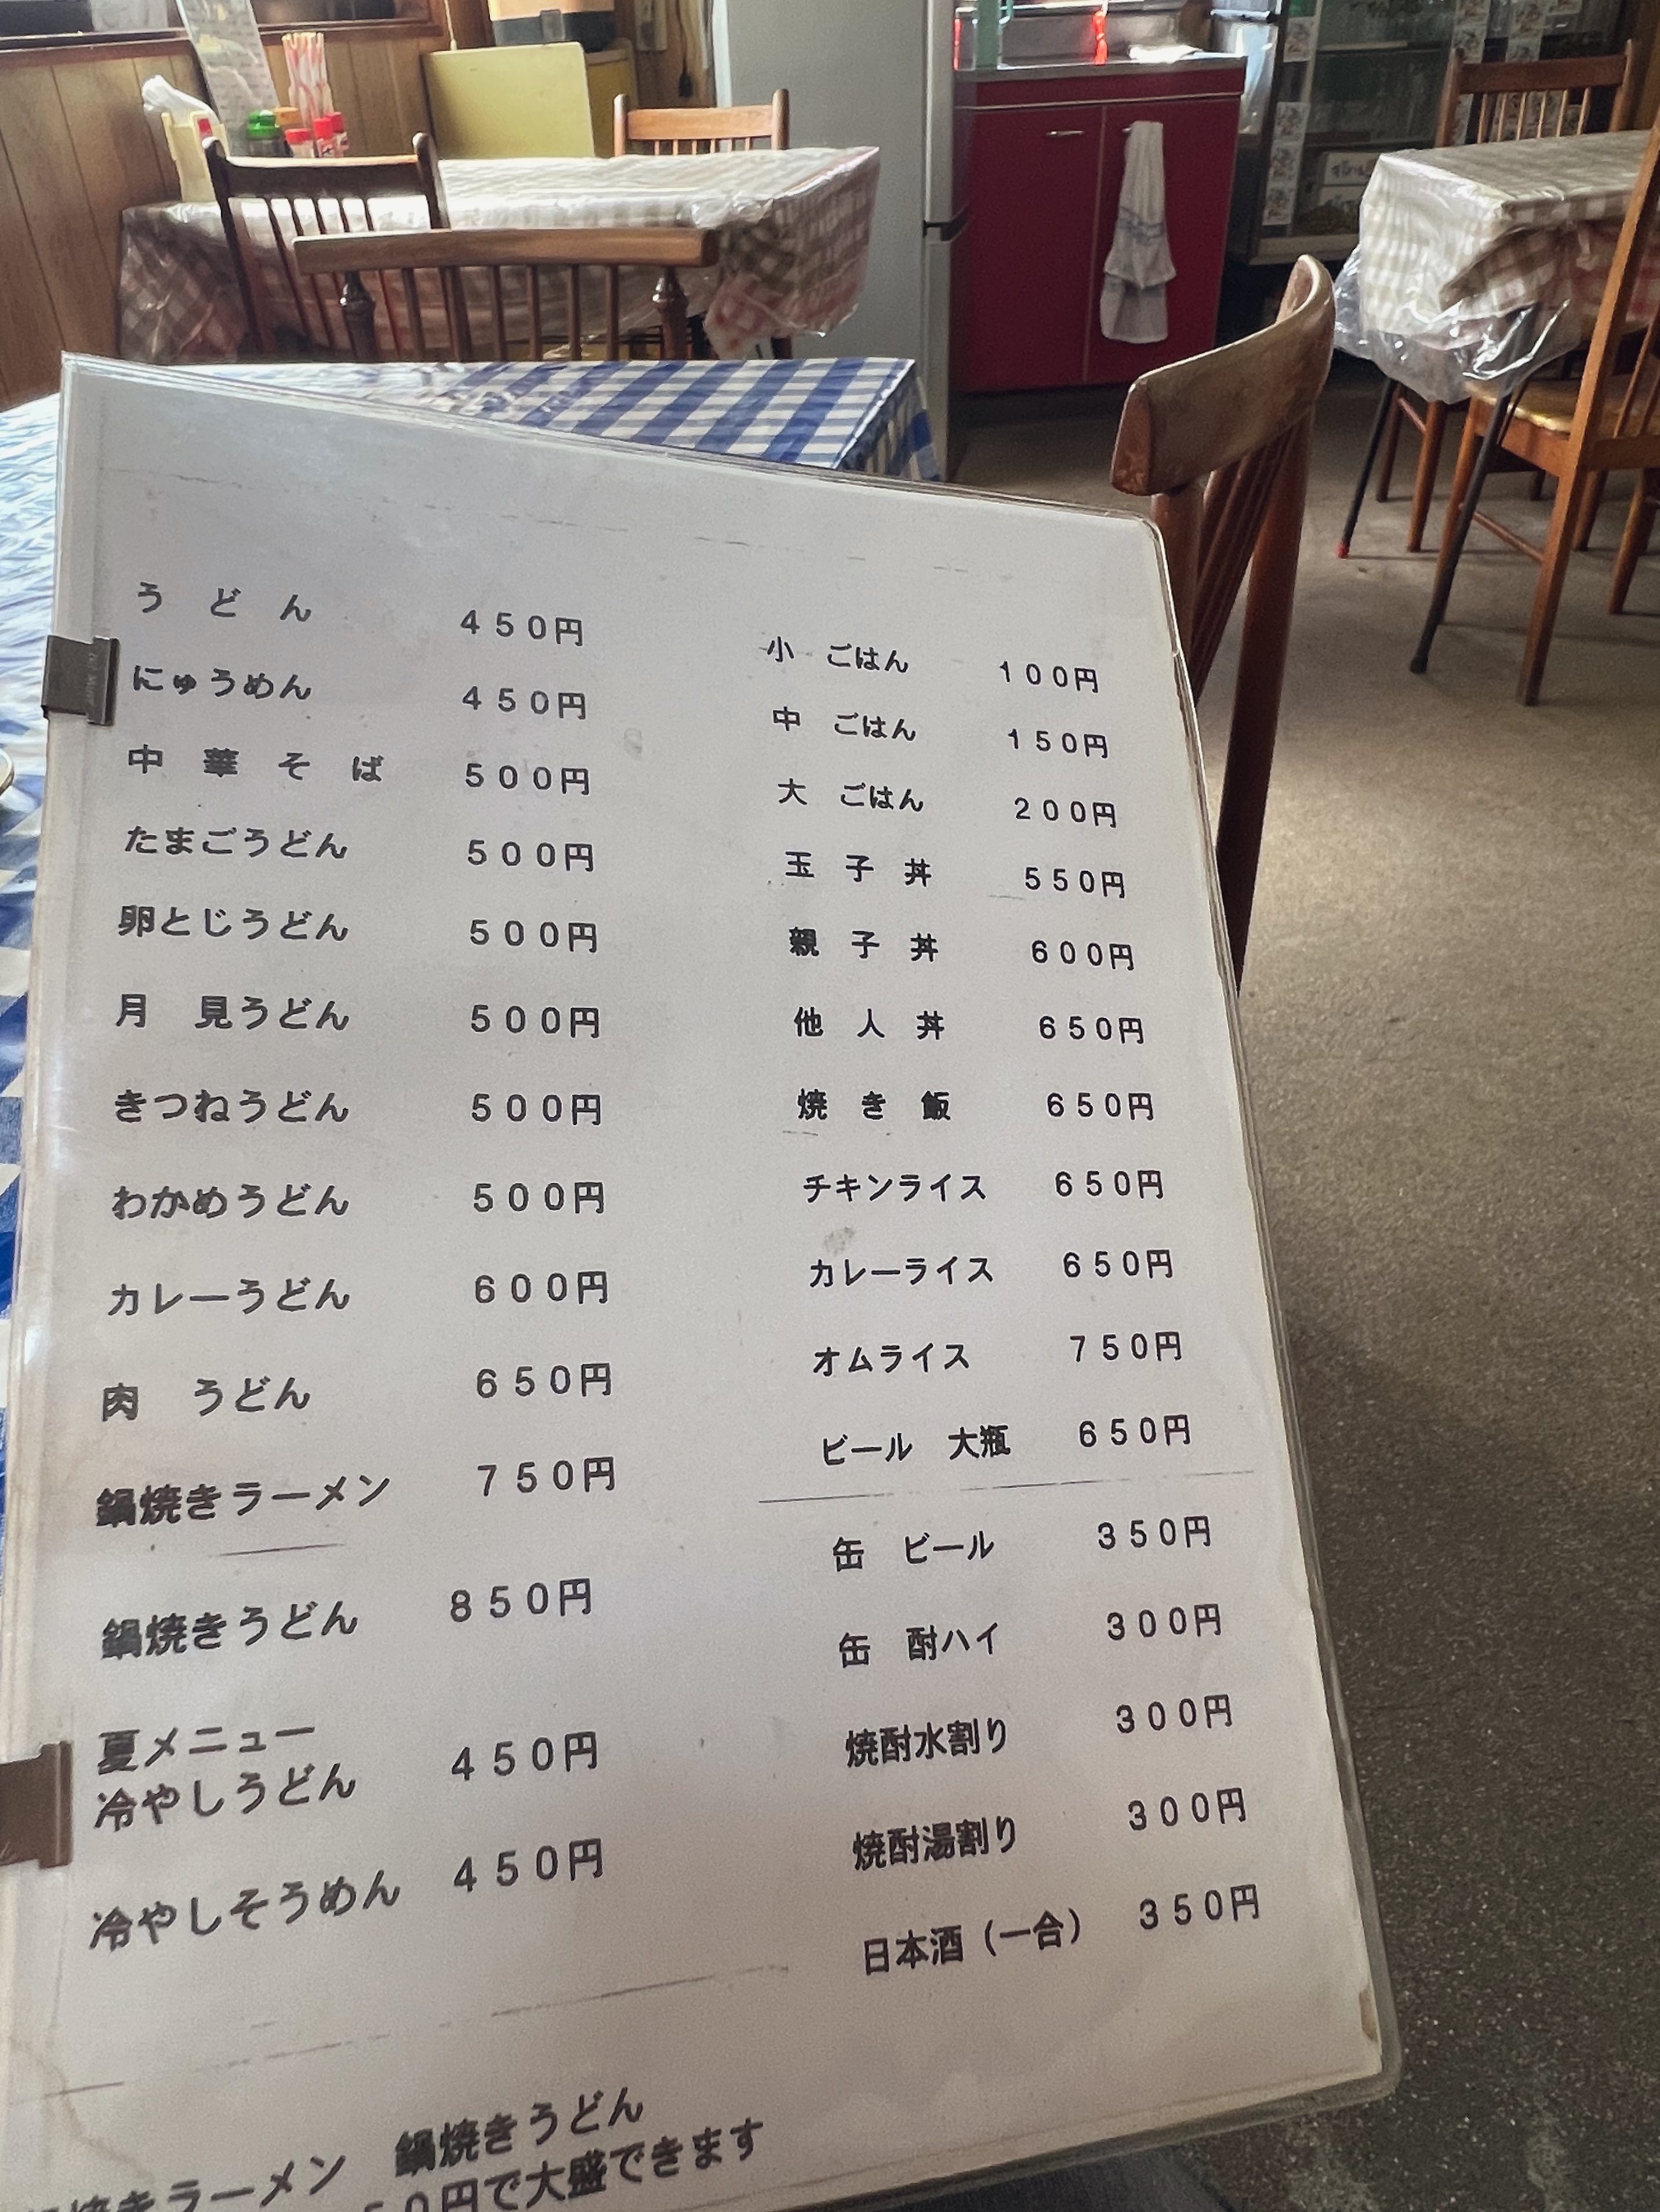 うどん 450円
にゅうめん 450円
中華そば 500円
たまごうどん 500円
卵とじうどん 500円
月見うどん 500円
きつねうどん 500円
わかめうどん 500円
カレーうどん 600円
肉うどん 650円
鍋焼きラーメン 750円
鍋焼きうどん 850円
夏メニュー
冷やしうどん 450円
冷やしそうめん 450円
小 ごはん 100円
中 ごはん 150円
大 ごはん 200円
玉子丼 550円
親子丼 600円
他人丼 650円
焼き飯 650円
チキンライス 650円
カレーライス 650円
オムライス 750円
ビール 大瓶 650円
缶 ビール 350円
缶 酎ハイ 300円
焼酎水割り 300円
焼酎湯割り 300円
日本酒（一合） 350円
焼きラーメン 鍋焼きうどん
50円で大盛できます